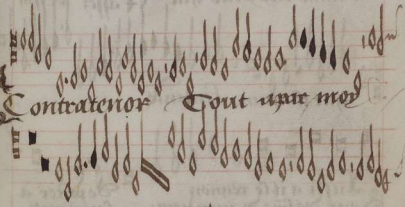 Contratenor Tout apar moy